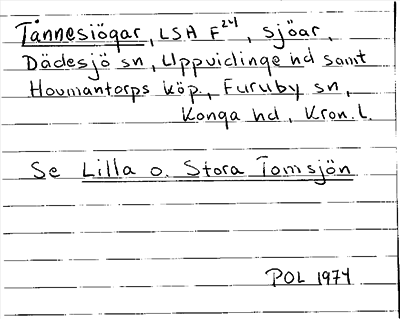 Tånnesiögar, LSA F²⁴¹, sjöar,
Dädesjö sn, Uppvidinge hd samt
Hovmantorps köp., Furuby sn,
Konga hd, Kron. l.
Se Lilla o. Stora Tomsjön
POL 1974